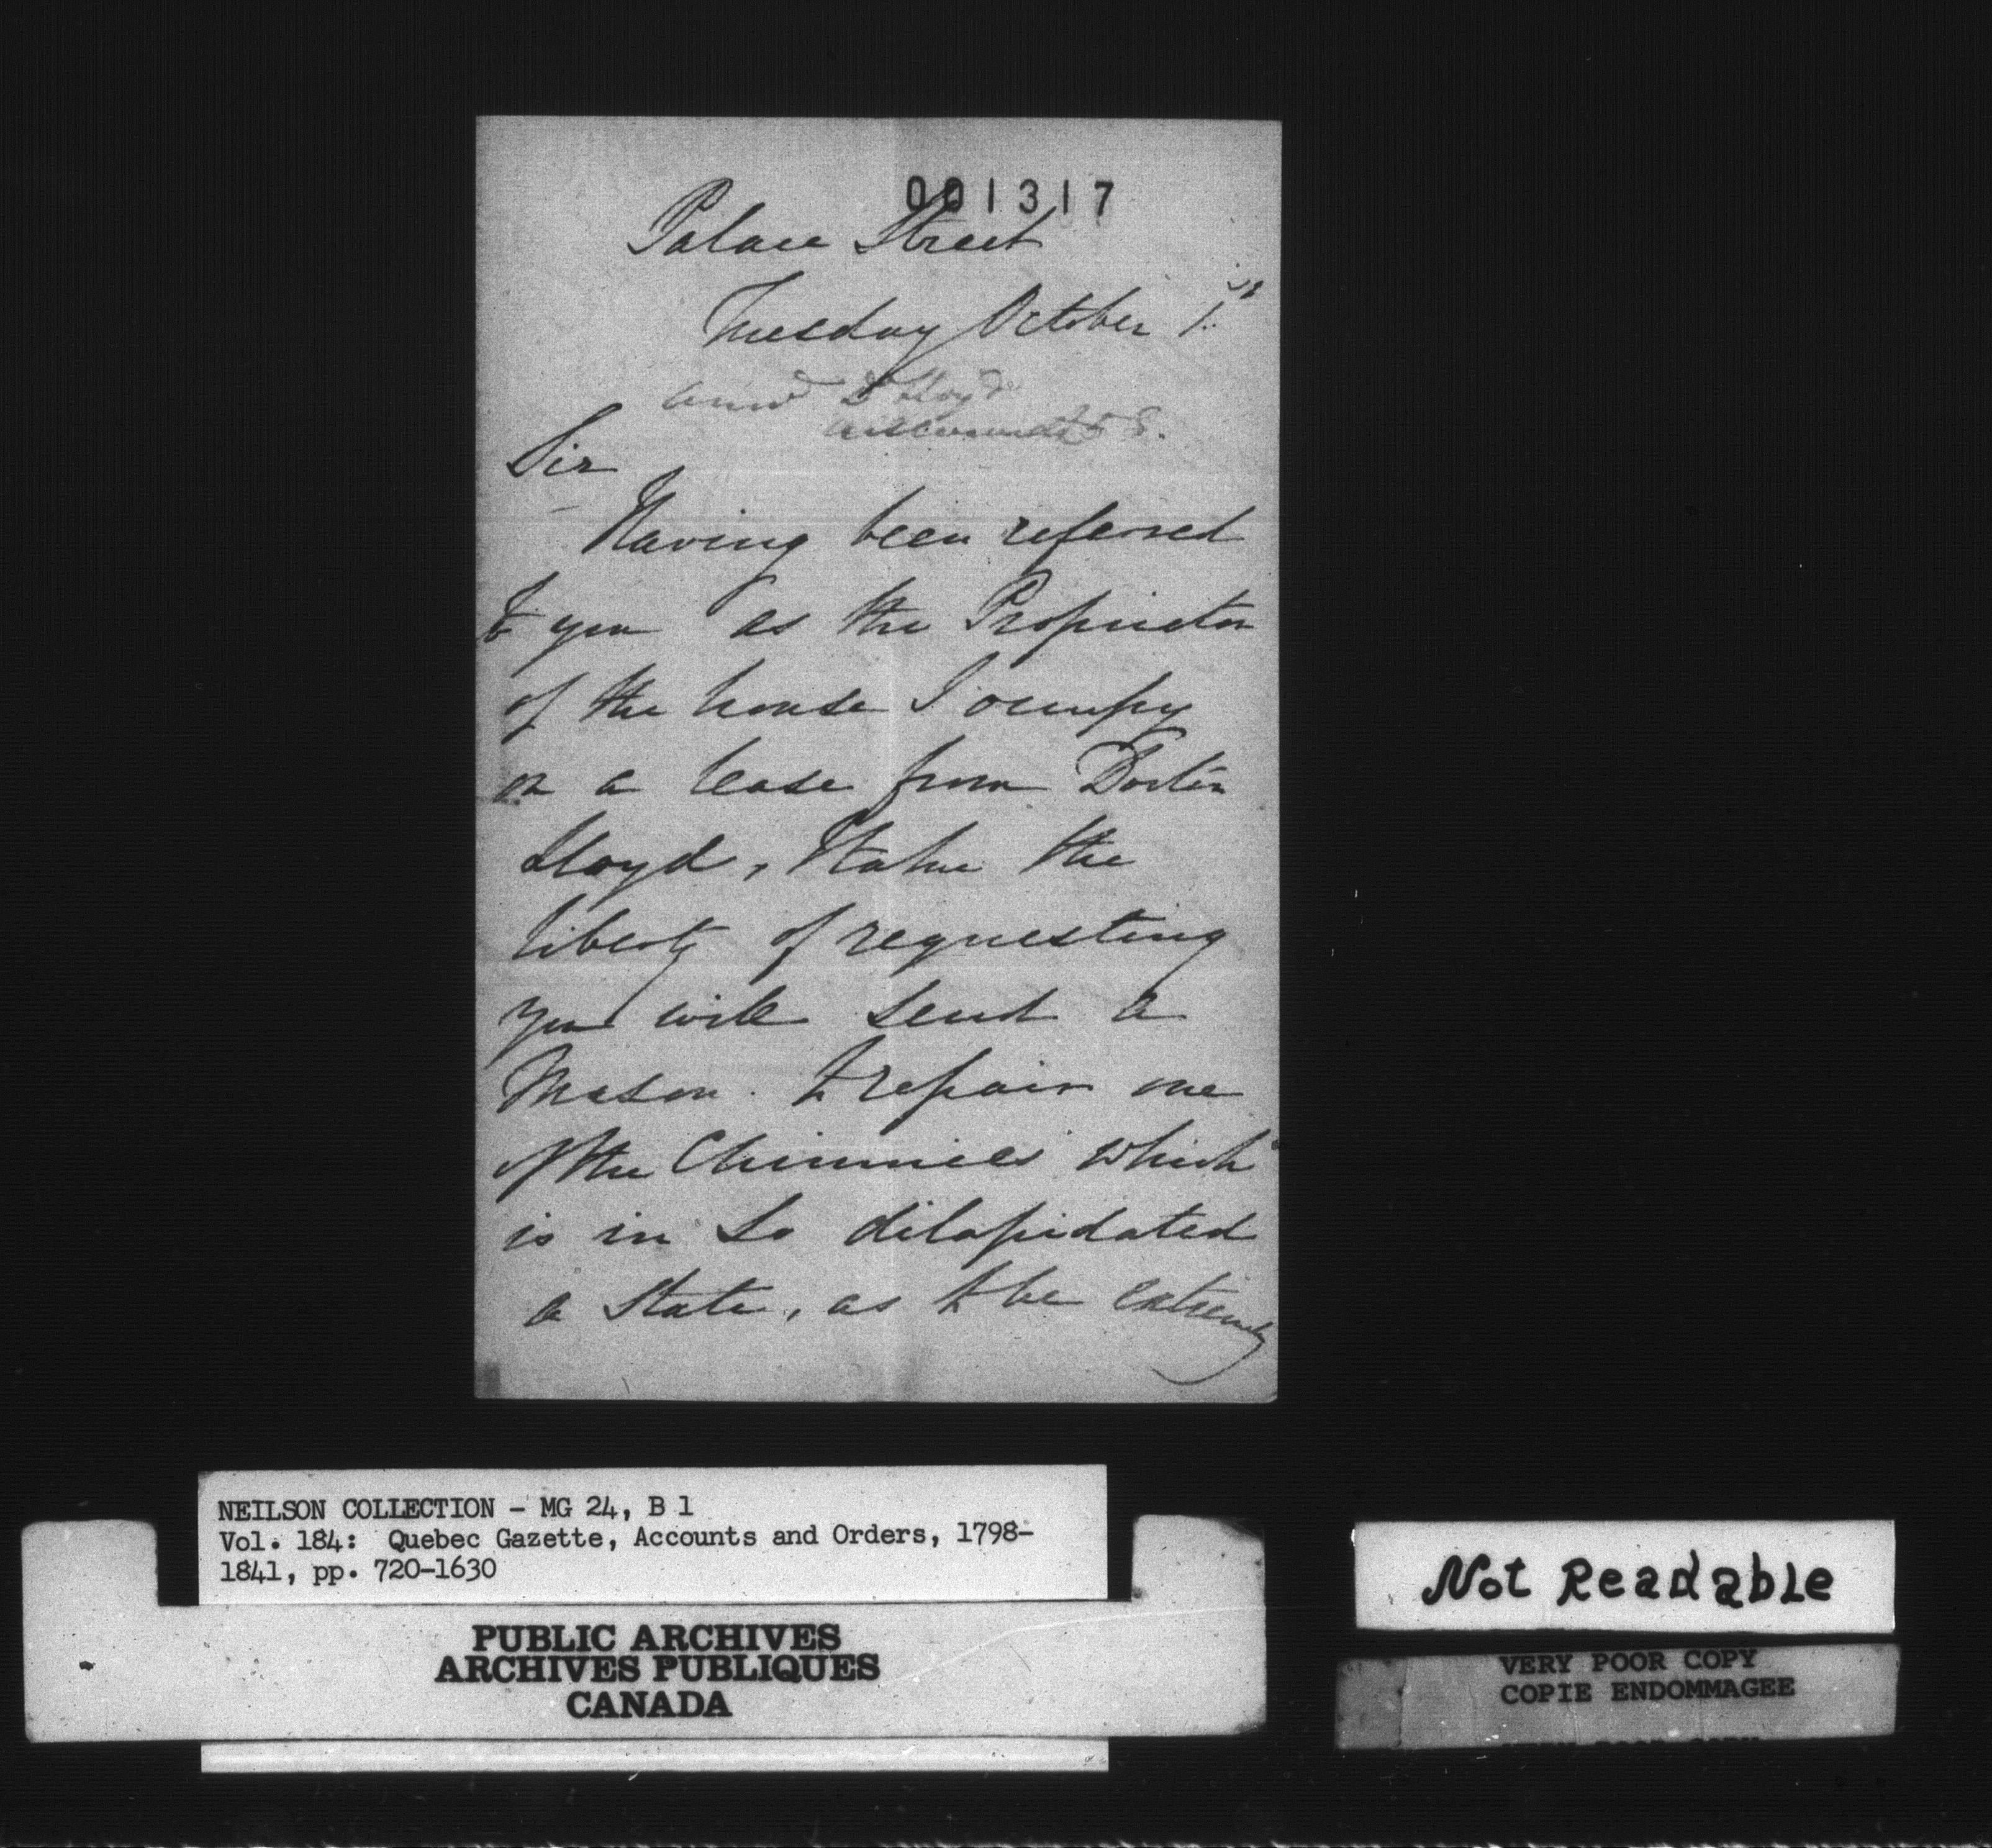 001317
Palace Street
Tuesday October 1st
Lloyd
Sir
Having been referred
to you as the Proprietor
of the house I occupy
on a lease from Doctor
Lloyd, I take the
liberty of requesting
you will send a
Mason to repair one
of the Chimnies which
is in so dilapidated
a State, as to be extremely
NEILSON COLLECTION - MG 24, B 1
Vol. 184: Quebec Gazette, Accounts and Orders, 1798-
1841, pp. 720-1630
PUBLIC ARCHIVES
ARCHIVES PUBLIQUES
CANADA
Not Readable
VERY POOR COPY
COPIE ENDOMMAGEE